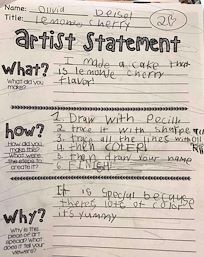 Name: Olivia Deisel
Title: Lemonade Cherry
artist Statement
What?
What did you make?
I made a cake that
is lemonade cherry
flavor!
how?
How did you make this? What were the steps to create it?
1. Draw with Pecill
2. trace it with sharpie
3. trace all the lines without
4. then COLER!
5. then draw your name
6. FINISH!
Why?
Why is this piece of art special? What does it tell your viewers?
It is special because
there's lots of
it's yummy